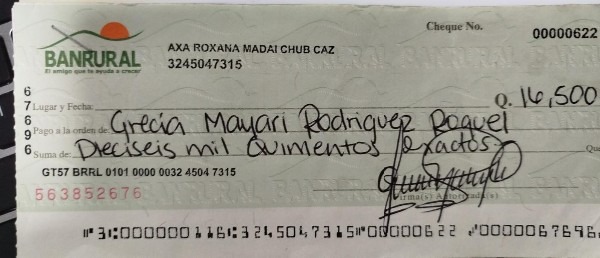 Cheque No. 00000622
BANRURAL
El amigo que te ayuda a crecer
AXA ROXANA MADAI CHUB CAZ
3245047315
Lugar y Fecha: Q. 16,500
Pago a la orden de: Grecia Mayari Rodriguez Raquel
Suma de: Dieciseis mil Quinientos exactos. Que
67696
GT57 BRRL 0101 0000 0032 4504 7315
563852676
Firma(s) Autorizada(s)
3 000000116 3245047315 00000622 0000067696